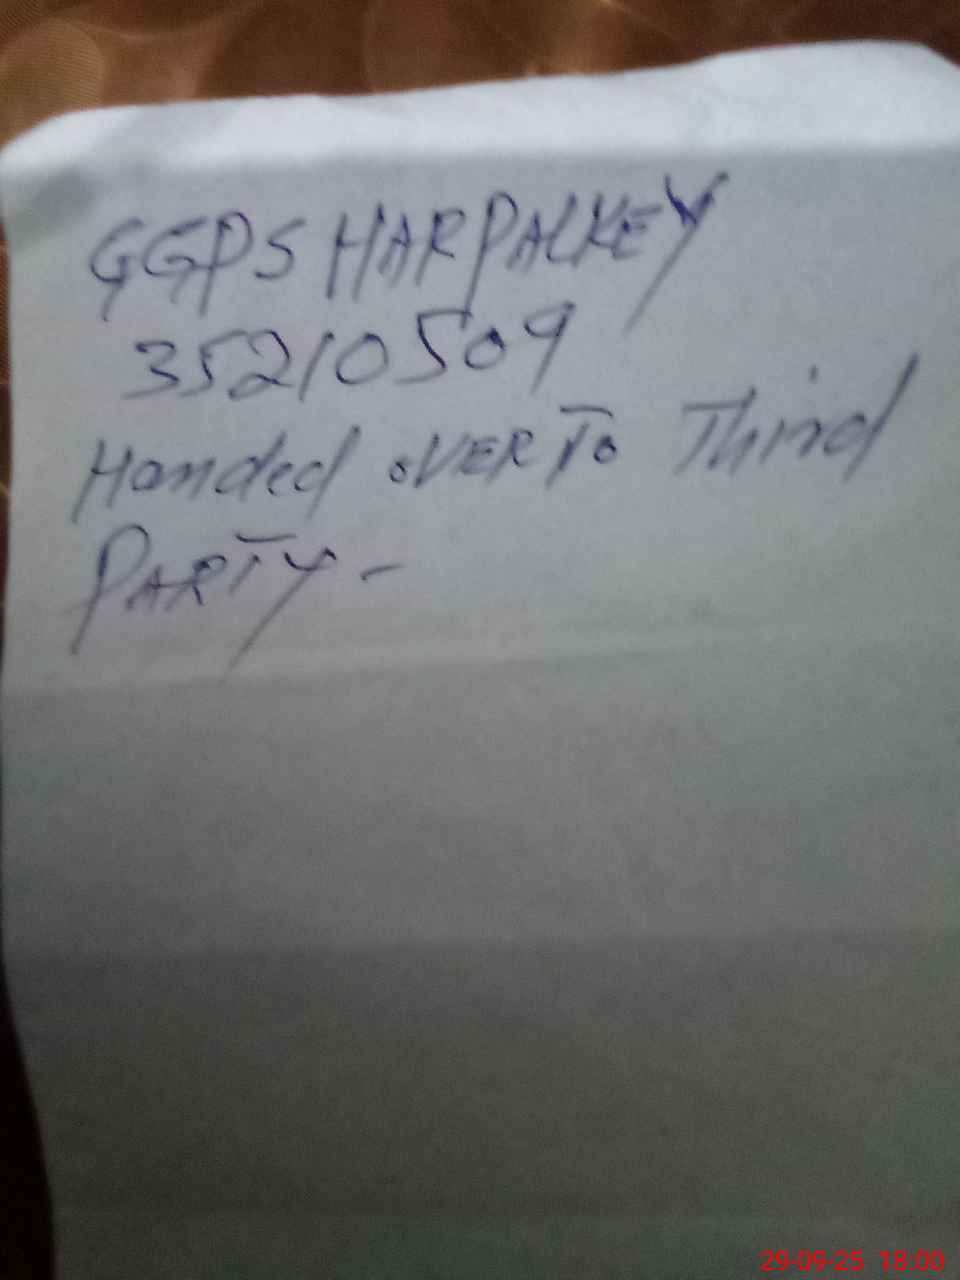 GGPS HARPALKEY
35210509
Handed OVER To Third
PARTY -
29-09-25 18:00